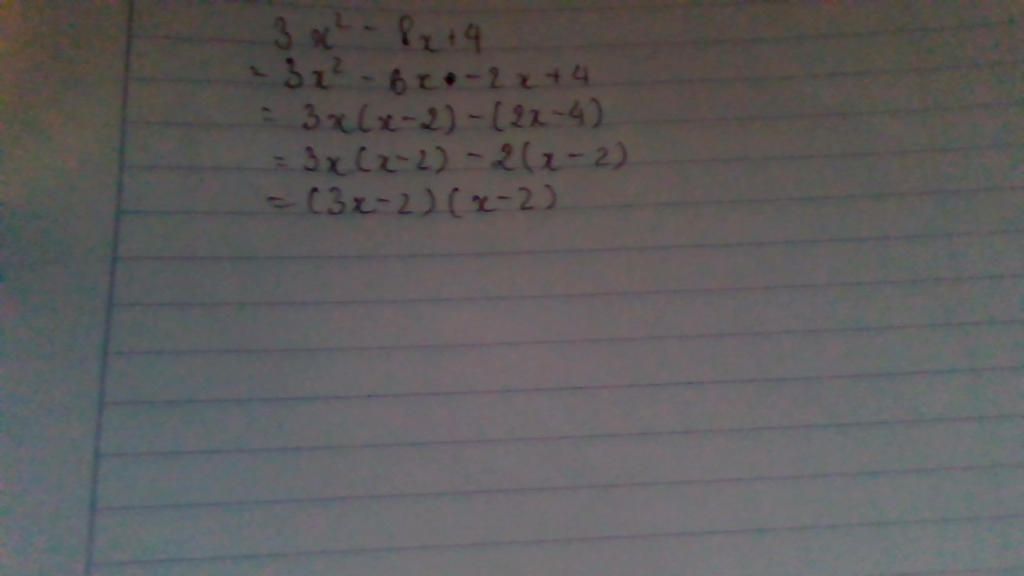 3x² - 8x+4
= 3x² - 6x - 2x + 4
= 3x(x-2) - (2x-4)
= 3x(x-2) - 2(x-2)
= (3x-2)(x-2)